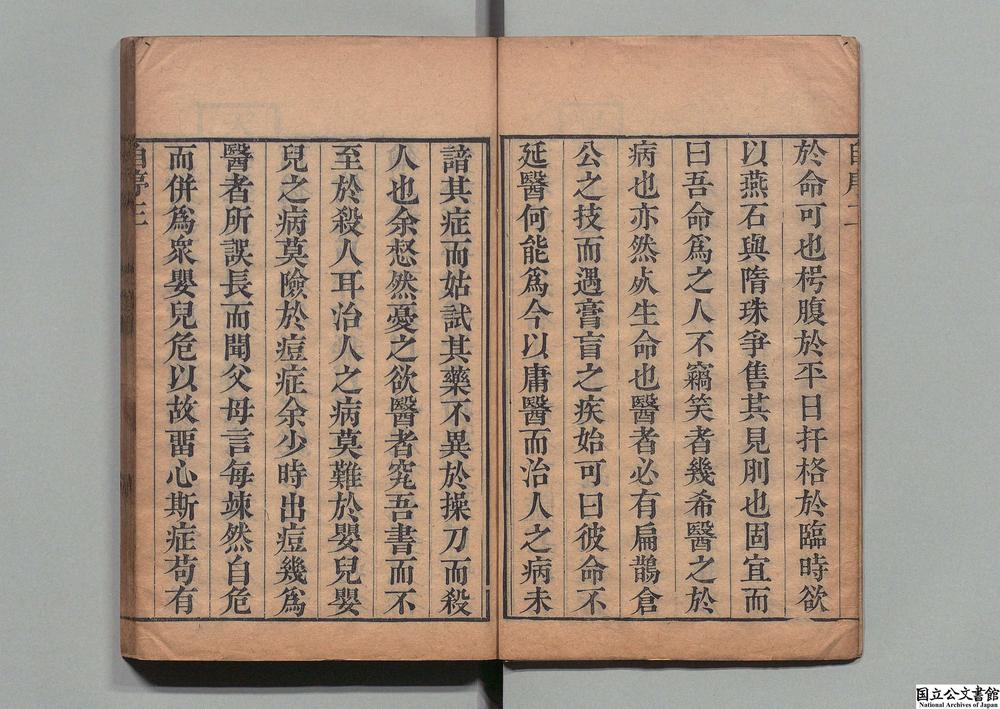 自序二
於命可也枵腹於平日扞格於臨時欲
以燕石與隋珠爭售其見刖也固宜而
曰吾命爲之人不竊笑者幾希醫之於
病也亦然夫生命也醫者必有扁鵲倉
公之技而遇膏肓之疾始可曰彼命不
延醫何能爲今以庸醫而治人之病未
諳其症而姑試其藥不異於操刀而殺
人也余惄然憂之欲醫者究吾書而不
至於殺人耳治人之病莫難於嬰兒嬰
兒之病莫險於痘症余少時出痘幾爲
醫者所誤長而聞父母言每竦然自危
而併爲衆嬰兒危以故畱心斯症苟有
自序三
国立公文書館
National Archives of Japan